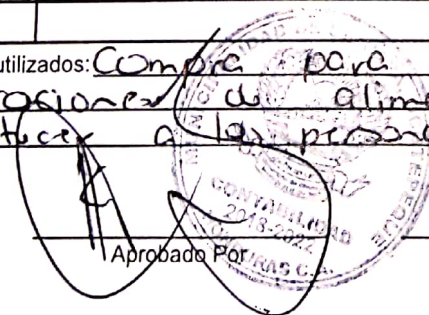 utilizados: Compra para
raciones de alime
a las persona
Aprobado Por
CONTABILIDAD
2018-2022
HONDURAS C.A.